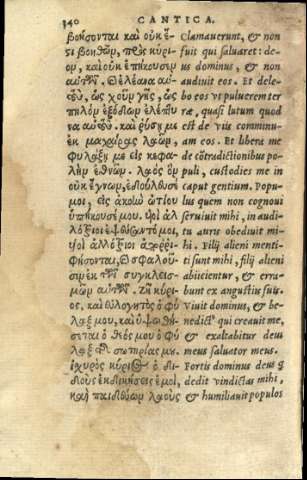 340 CANTICA.
βοήσονται καὶ οὐκ ἔ-
ςι βοηθῶν, πρὸς κύρι-
ον, καὶ οὐκ ἐπήκουσεν
αὐτῶν. καὶ ἐλέανα αὐ-
τοὺς, ὡς χοῦν γῆς, ὡς
πηλὸν ἐξόδων ἐλέπτυ
να αὐτούς. καὶ ῥύσῃ με
ἐκ μαχώρας λαῶν,
φυλάξῃ με εἰς κεφα-
λὴν ἐθνῶν. λαὸς ὃν
οὐκ ἔγνων, ἐδούλευσέ
μοι, εἰς ἀκοὴν ὠτίου
ὑπήκουσέ μου. ὑοὶ ἀλ
λότριοι ἐψεύσαντό μοι,
ὑοὶ ἀλλότριοι ἀπορρι-
φήσονται, καὶ σφαλοῦ-
σιν ἐκ τῶν συγκλεισ-
μῶν αὐτῶν. ζῇ κύρι-
ος, καὶ εὐλογητὸς ὁ φύ
λαξ μου, καὶ ὑψωθή-
σεται ὁ θεός μου ὁ φύ
λαξ τῆς σωτηρίας μου.
ἰσχυρὸς κύριος ὁ δι-
δοὺς ἐκδικήσεις ἐμοί,
καὶ παιδεύων λαοὺς
Clamauerunt, & non
fuit qui saluaret: de-
us dominus, & non
audiuit eos. Et dele-
bo eos vt puluerem ter
ræ, quasi lutum quod
est de viis comminu-
am eos. Et libera me
de cōtradictionibus po-
puli, custodies me in
caput gentium. Popu-
lus quem non cognoui
seruiuit mihi, in audi-
tu auris obediuit mi-
hi. Filij alieni menti-
ti sunt mihi, filij alieni
abiicientur, & erra-
bunt ex angustiis suis.
Viuit dominus, & be-
nedictꝰ qui creauit me,
& exaltabitur deus
meus saluator meus.
Fortis dominus deus q̃
dedit vindictas mihi,
& humiliauit populos